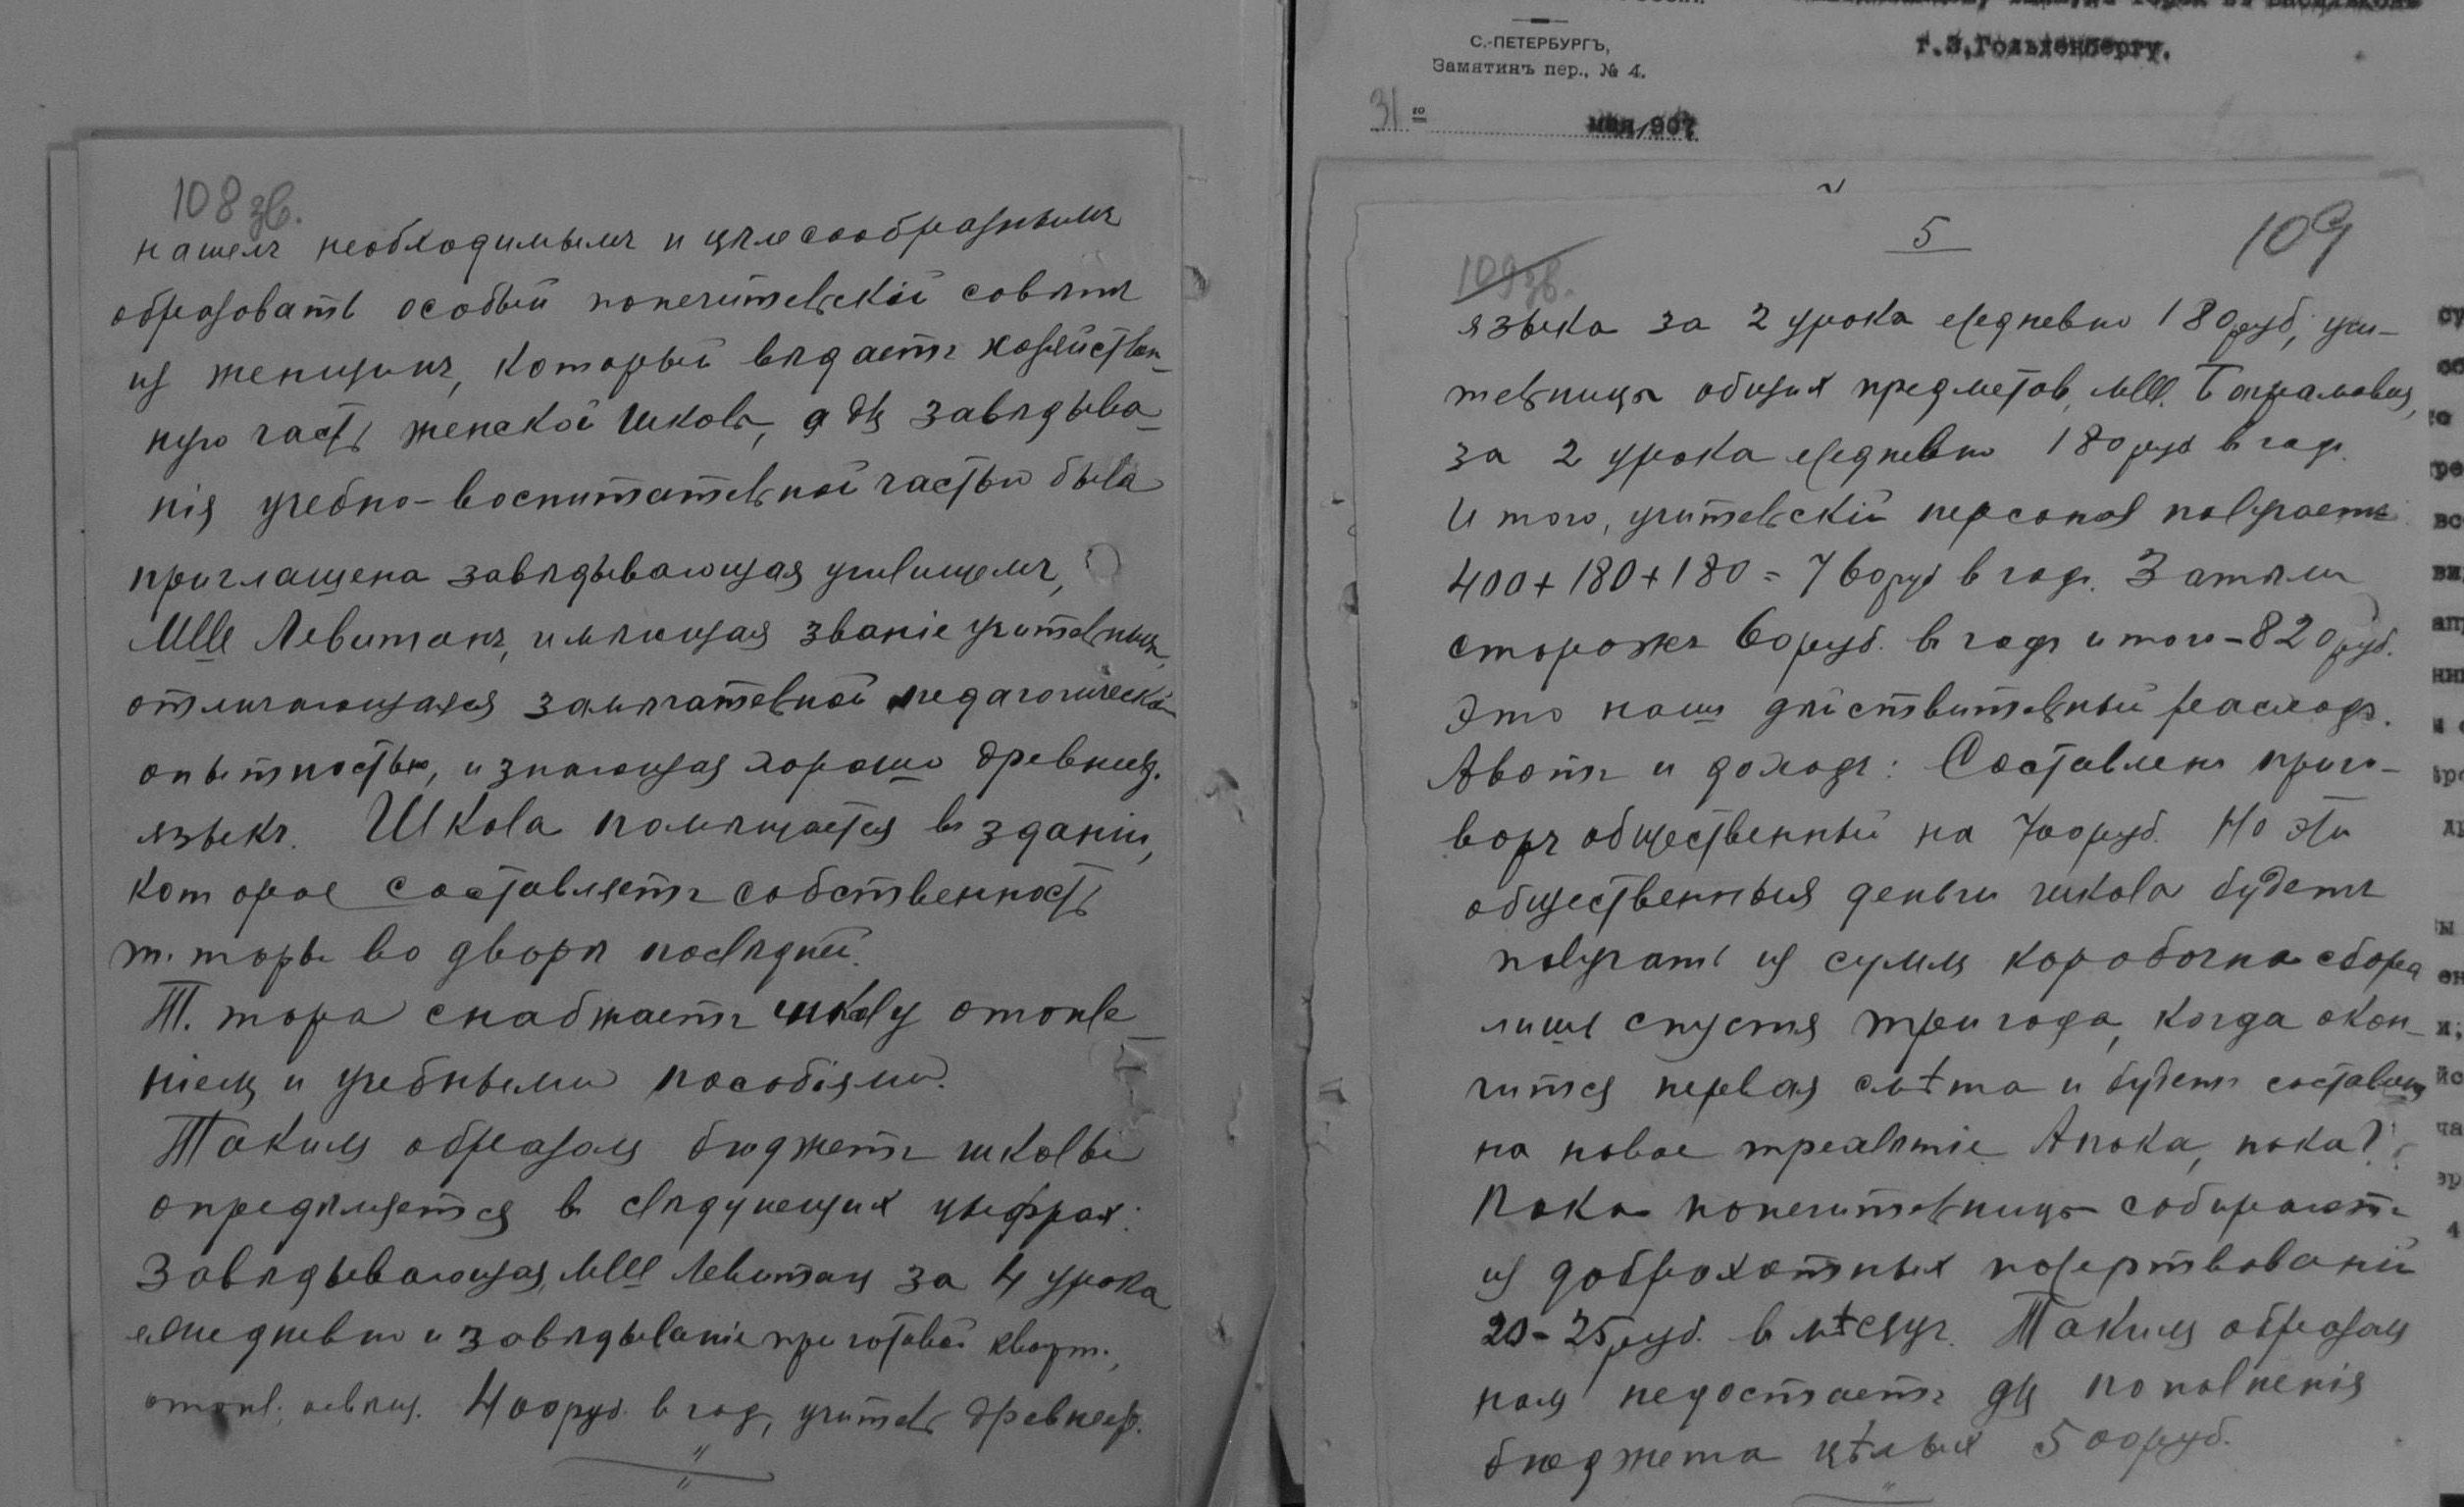 108 зв.
нашелъ необходимымъ и цѣлесообразнымъ
образовать особый попечительскій совѣтъ
из женщинъ, который вѣдаетъ хозяйствен-
ную часть женской школы, а для завѣдыва-
нія учебно-воспитательной частью была
приглашена завѣдывающая училищемъ,
Mlle Левитанъ, имѣющая званіе учительницы,
отличающаяся замѣчательной педагогической
опытностью, и знающая хорошо древнеев.
языкъ. Школа помѣщается въ зданіи,
которое составляетъ собственность
т. торы во дворѣ послѣдней.
Т. тора снабжаетъ школу отопле-
ніем и учебными пособіями.
Таким образом бюджетъ школы
опредѣляется в слѣдующих цыфрах:
Завѣдывающая, Mlle Левитан за 4 урока
ежедневно и завѣдываніе при готовой кварт.,
отопл., освѣщ. 400 руб. в год, учитель древнеевр.
С.-ПЕТЕРБУРГЪ,
Замятинъ пер., № 4.
г.Э.Гольденбергу.
31 го мая 1907
5
109
109 зв.
языка за 2 урока ежедневно 180 руб, учи-
тельница общих предметов, Mlle
за 2 урока ежедневно 180 руб в годъ.
Итого, учительскій персонал получаетъ
400 + 180 + 180 = 760 руб в годъ. Затѣм
сторожъ 60 руб. в годъ итого – 820 руб.
Это наш дѣйствительный расходъ.
А вотъ и доходъ: Составленъ приго-
воръ общественный на 700 руб. Но эти
общественныя деньги школа будетъ
получать из сумм коробочна сбора
лишь спустя три года, когда окон-
чится первая смѣта и будетъ составлена
на новое трехлѣтіе. А пока, пока?
Пока попечительницы собираютъ
из доброхотных пожертвованій
20 – 25 руб. в мѣсяцъ. Таким образом
нам недостаетъ для пополненія
бюджета цѣлых 500 руб.